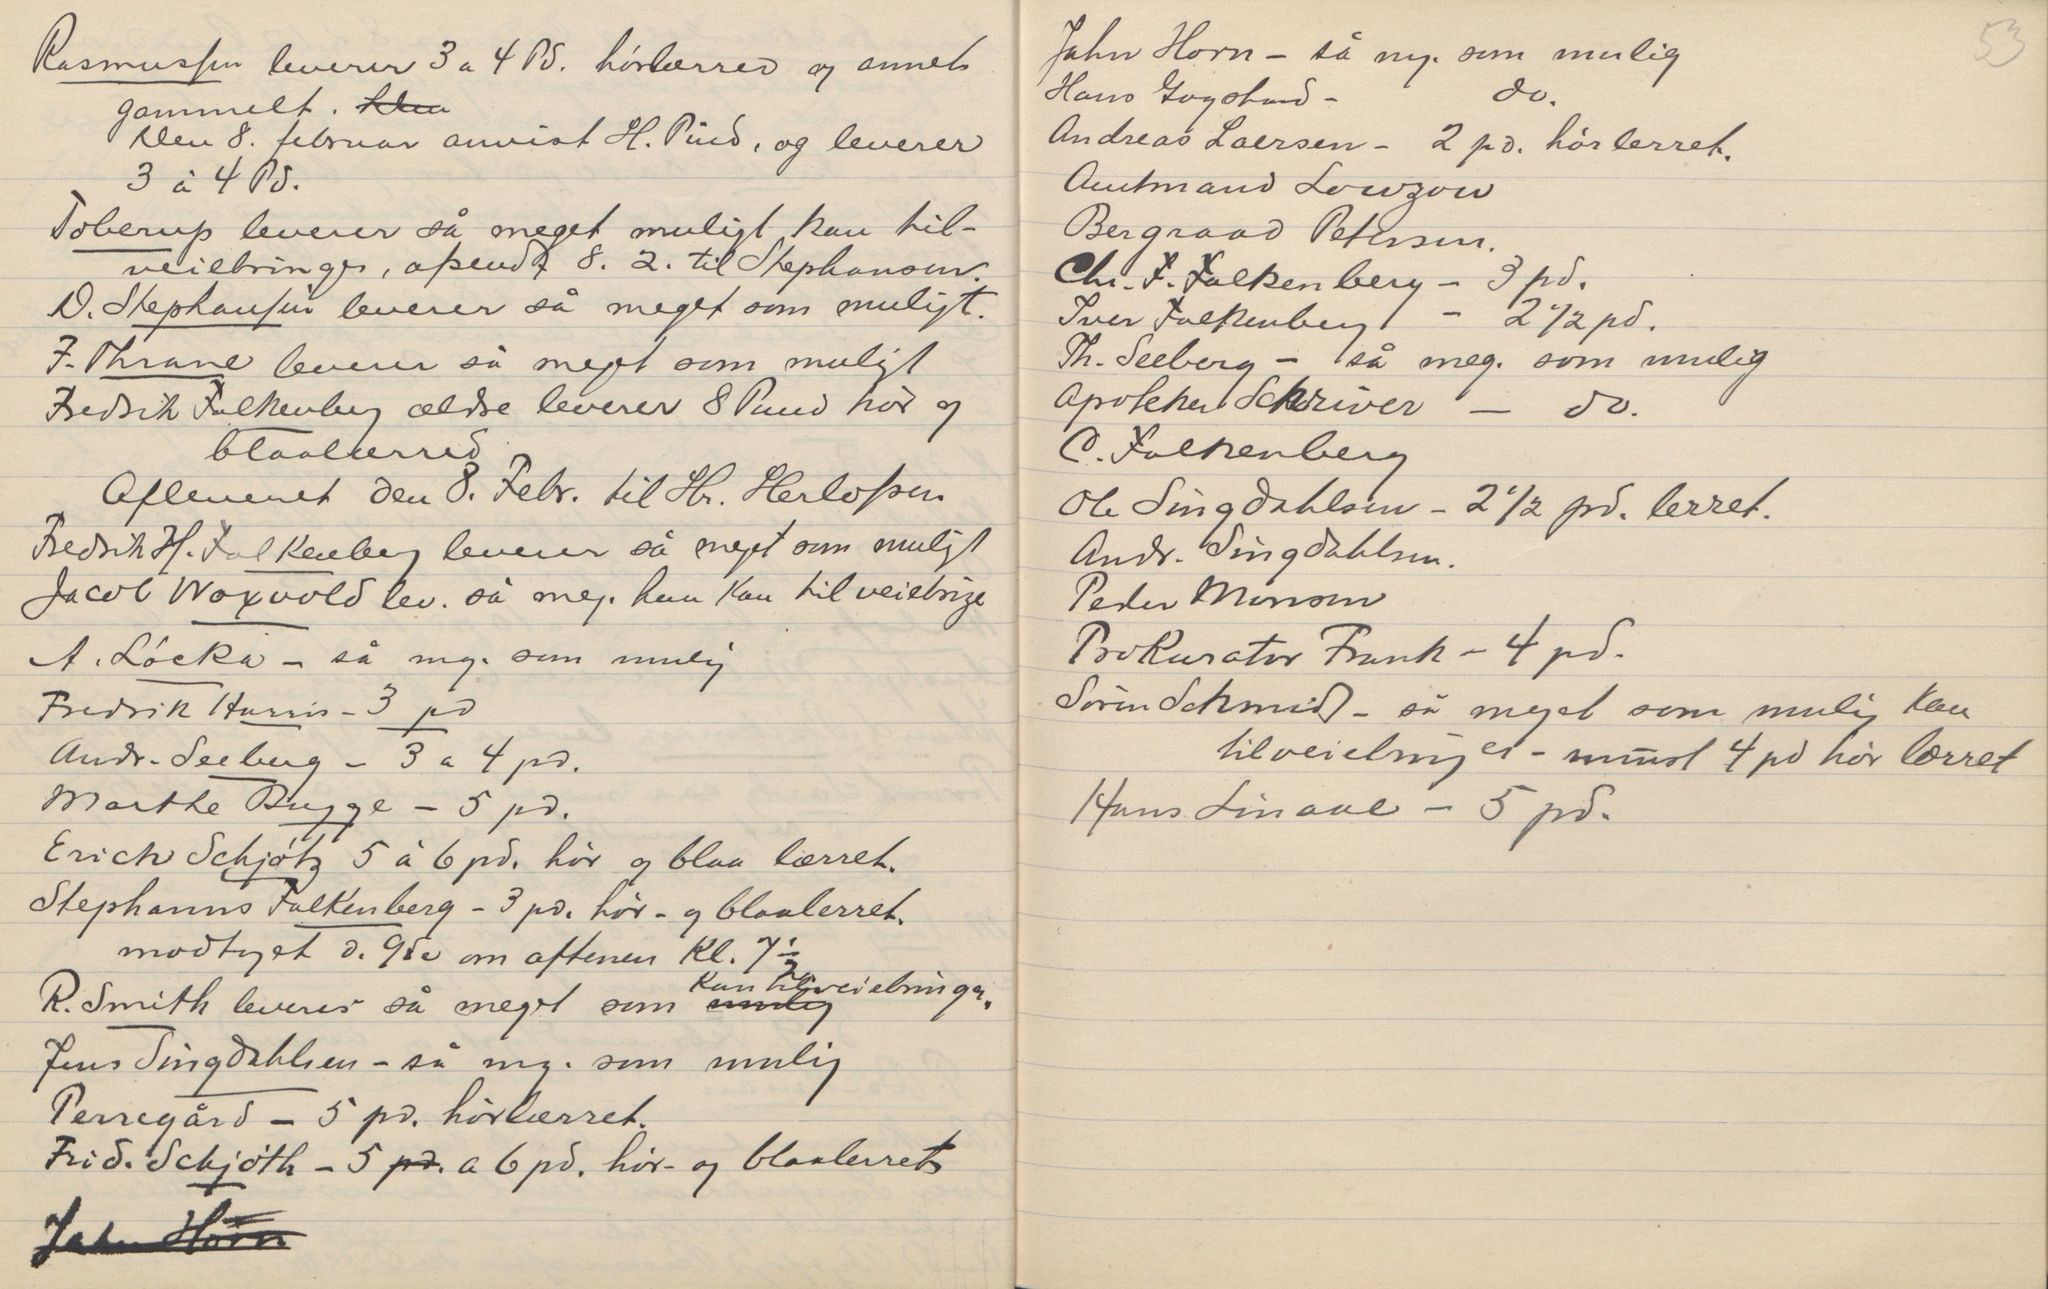 Rasmussen leverer 3 a 4 Pd. hörlærred og annet
gammelt. Den
Den 8. februar anvist H. Pind, og leverer
3 à 4 Pd.
Toberup leverer så meget muligt kan til-
veiebringes, afsendt 8. 2. til Stephansen.
D. Stephansen leverer så meget som muligt.
F. Thrane leverer så meget som muligt
Fredrik Falkenberg ældre leverer 8 Pund hör og
blaalærred
Afleveret den 8. Febr. til Hr. Herlofsen
Fredrik H. Falkenberg leverer så meget som muligt
Jacob Woxvold lev. så meg. han kan tilveiebringe
A. Löcka - så mg. som mulig
Fredrik Harris - 3 pd
Andr. Seeberg - 3 a 4 pd.
Marthe Bugge - 5 pd.
Erich Schjötz 5 à 6 pd. hör og blaa lærret.
Stephanus Falkenberg - 3 pd. hör- og blaalerret.
modtaget d. 9de om aftenen Kl. 7 1/2
R. Smith leverer så meget som mulig kan tilveiebringes.
Jens Singdahlsen - så mg. som mulig
Perregård - 5 pd. hörlærret.
Frid. Schjöth - 5 pd. a 6 pd. hör- og blaalerret
Jahn Horn
53
Jahn Horn - så mg. som mulig
Hans Gogstad - do.
Andreas Laersen - 2 pd. hörlerret.
Amtmand Lowzow
Bergraad Petersen.
Chr. F. Falkenberg - 3 pd.
Iver Falkenberg - 2 1/2 pd.
Th. Seeberg - så meg. som mulig
Apotheker Schriver - do.
C. Falkenberg
Ole Singdahlsen - 2 1/2 pd. lerret.
Andr. Singdahlsen.
Peder Monsen
Prokurator Frank - 4 pd.
Sören Schmidt - så meget som mulig kan
tilveiebringes - minst 4 pd hör lærret
Hans Linaae - 5 pd.